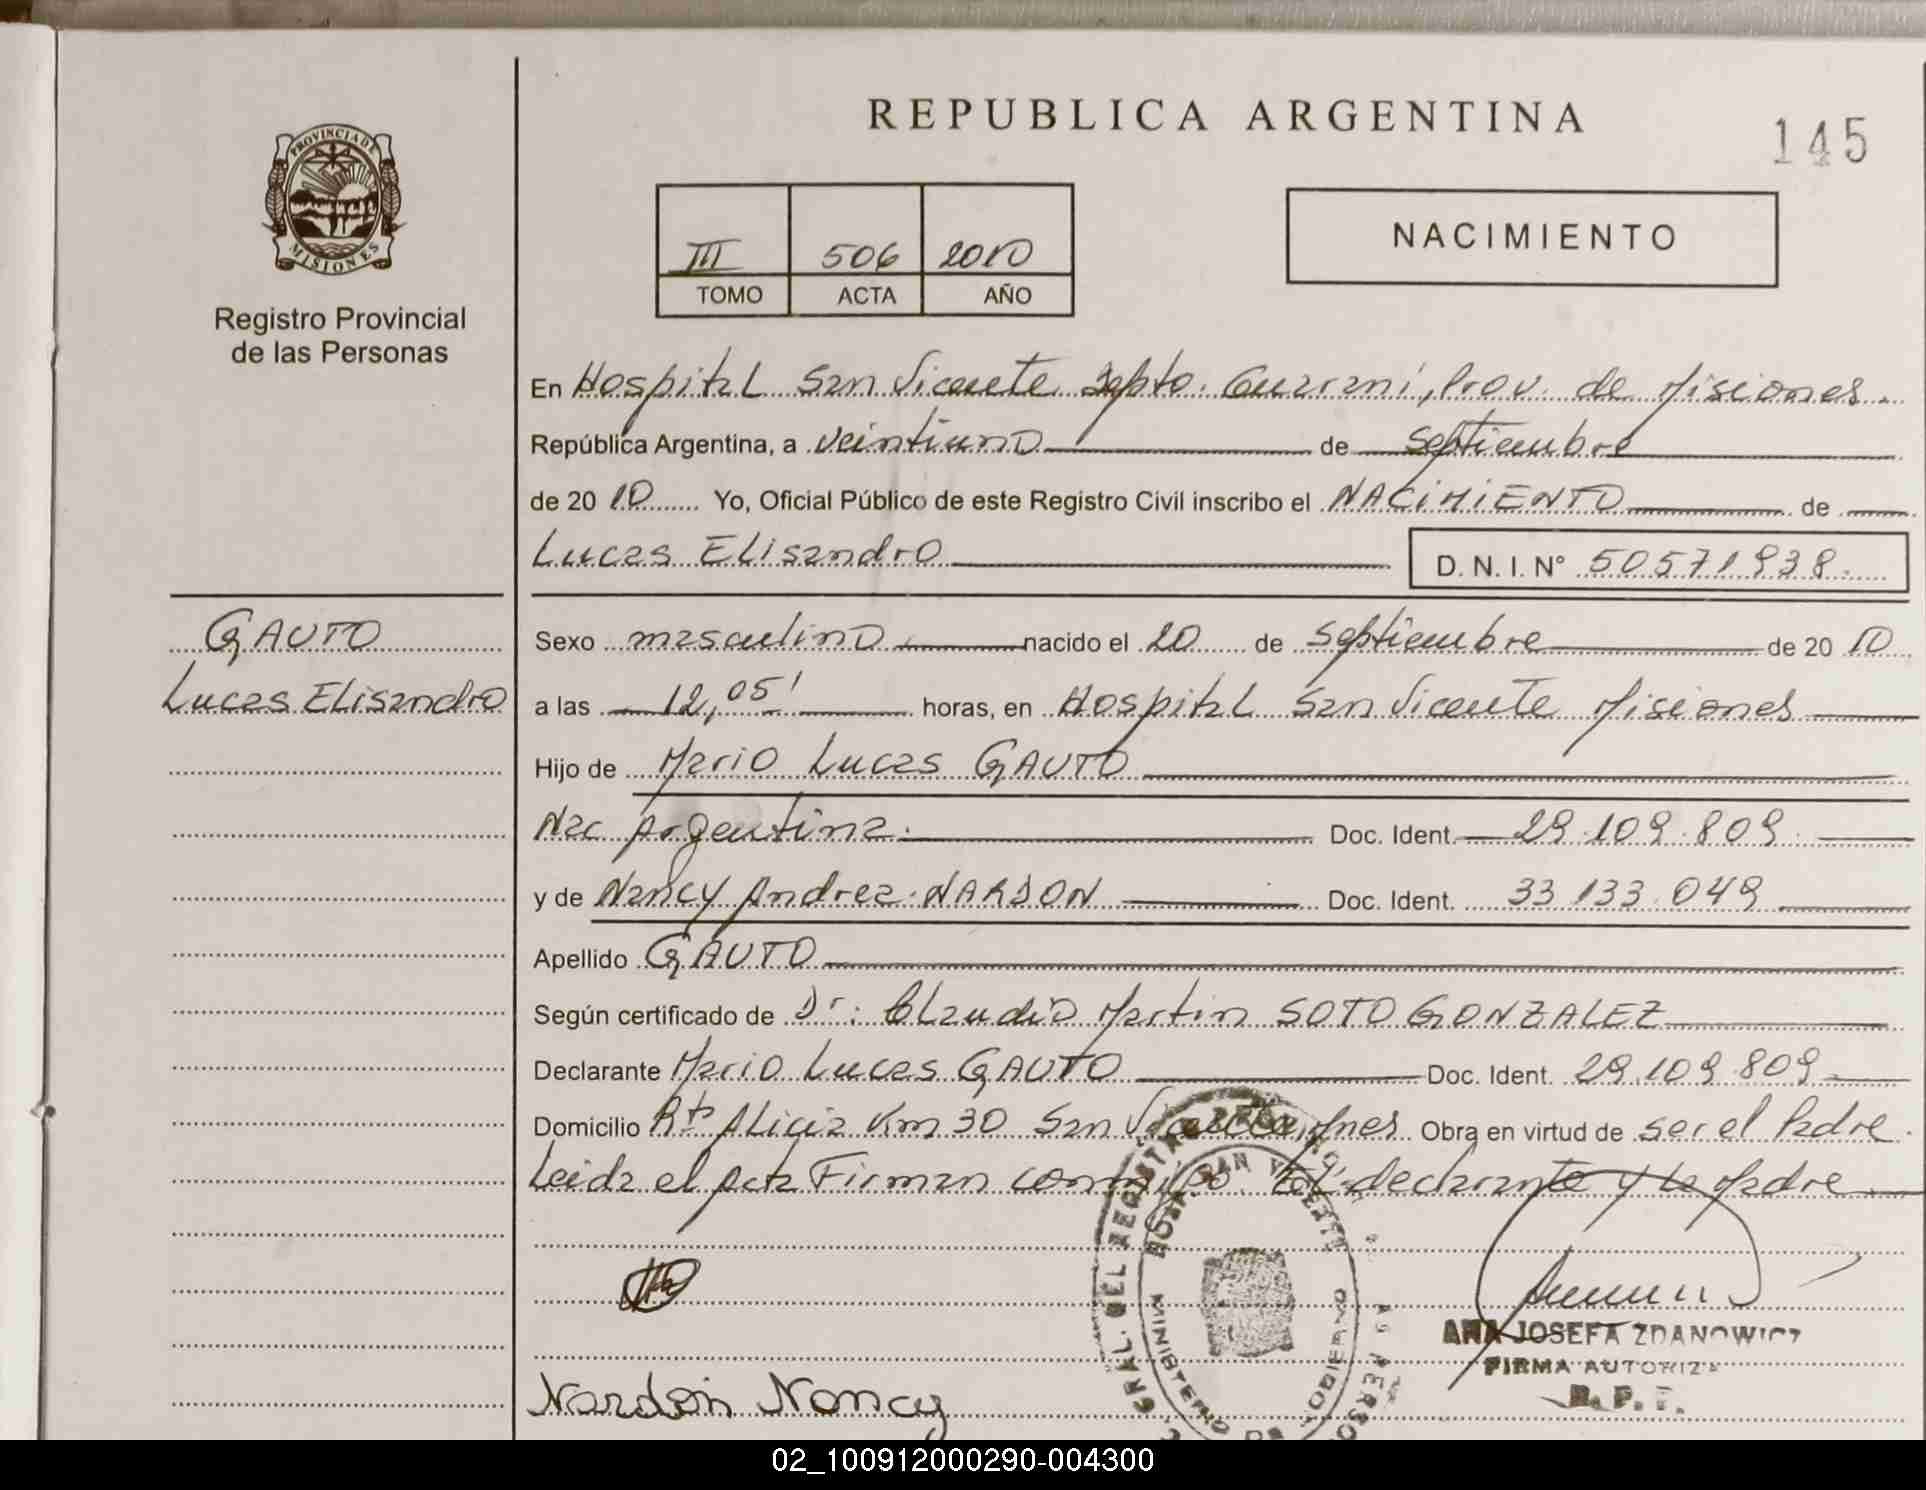 REPUBLICA ARGENTINA
145
PROVINCIA DE
MISIONES
Registro Provincial
de las Personas
III 506 2010
TOMO ACTA AÑO
NACIMIENTO
En Hospital San Vicente Dpto. Guarani, Prov. de Misiones.
República Argentina, a veintiuno de septiembre
de 20 10 Yo, Oficial Público de este Registro Civil inscribo el NACIMIENTO de
Lucas Elisandro D.N.I. N° 50571938.
GAUTO
Lucas Elisandro
Sexo masculino nacido el 20 de septiembre de 20 10
a las 12,05' horas, en Hospital San Vicente Misiones
Hijo de Mario Lucas GAUTO
Nac Argentina. Doc. Ident. 29.109.809.
y de Nancy Andrea NARDON Doc. Ident. 33 133.049
Apellido GAUTO
Según certificado de Dr: Claudio Martin SOTO GONZALEZ
Declarante Mario Lucas GAUTO Doc. Ident. 29.109.809
Domicilio Rta Alicia Km 30 San Vicente, Mnes. Obra en virtud de ser el Padre.
Leida el Acta Firman conmigo. El declarante y la Madre
HOSP. SAN VICENTE
MINISTERIO DE GOBIERNO
GRAL. DEL REGISTRO
ANA JOSEFA ZDANOWICZ
FIRMA AUTORIZ
R. P. P.
Nardon Nancy
02_100912000290-004300